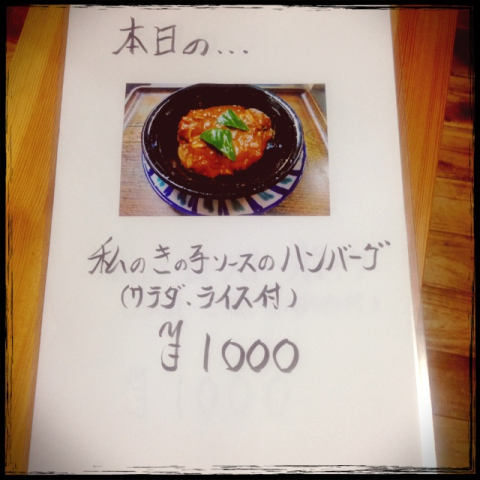 本日の...
私のきの子ソースのハンバーグ
(サラダ、ライス付)
¥1000